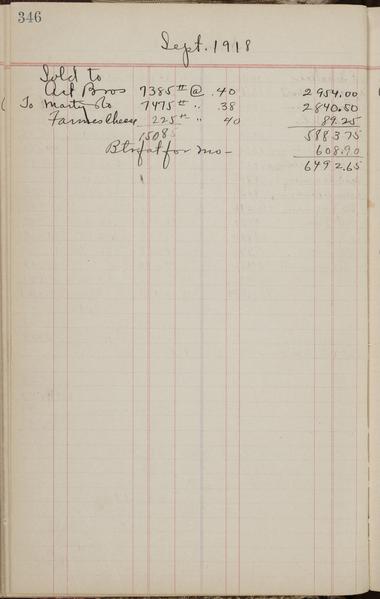 346
Sept. 1918
Sold to
Bros 7385 # @ .40 2954.00
To Marty Co 7475 # " .38 2840.50
Farmers Cheese 225 # " 40 89.25
15085 588375
Btrfat for mo- 608.90
6492.65